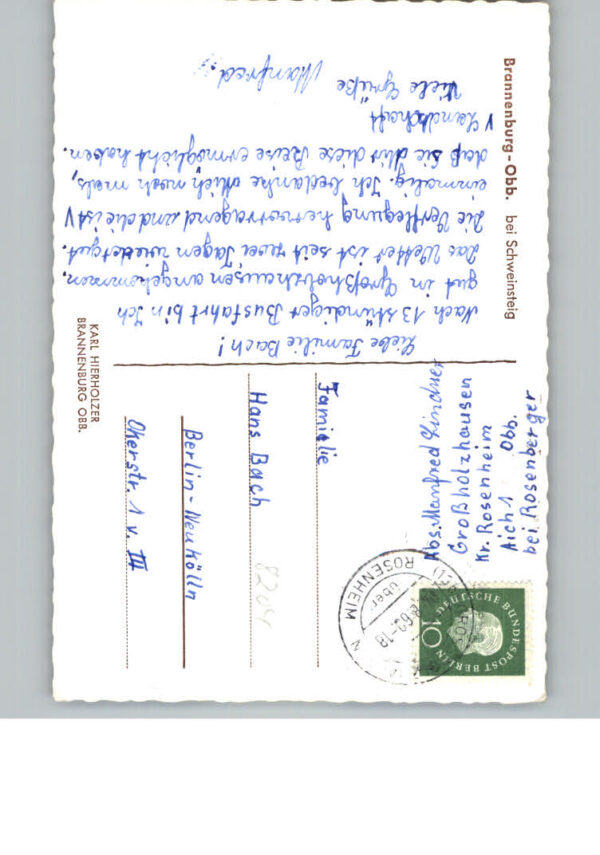 Brannenburg-Obb. bei Schweinsteig
Liebe Familie Bach!
Nach 13 stündiger Busfahrt bin Ich
gut in Großholzhausen angekommen.
Das Wetter ist seit zwei Tagen wieder gut.
Die Verflegung hervorragend und die ist V
einmalig. Ich bedanke Mich noch mals,
daß Sie Mir diese Reise ermöglicht haben.
V Landschaft
Viele Grüße
Manfred!
KARL HIERHOLZER
BRANNENBURG OBB.
Abs: Manfred Lindner
Großholzhausen
Kr. Rosenheim
Aich 1 Obb.
bei Rosenberger
DEUTSCHE BUNDESPOST BERLIN
10
über
ROSENHEIM
Familie
Hans Bach
Berlin-Neukölln
Okerstr. 1 v. III